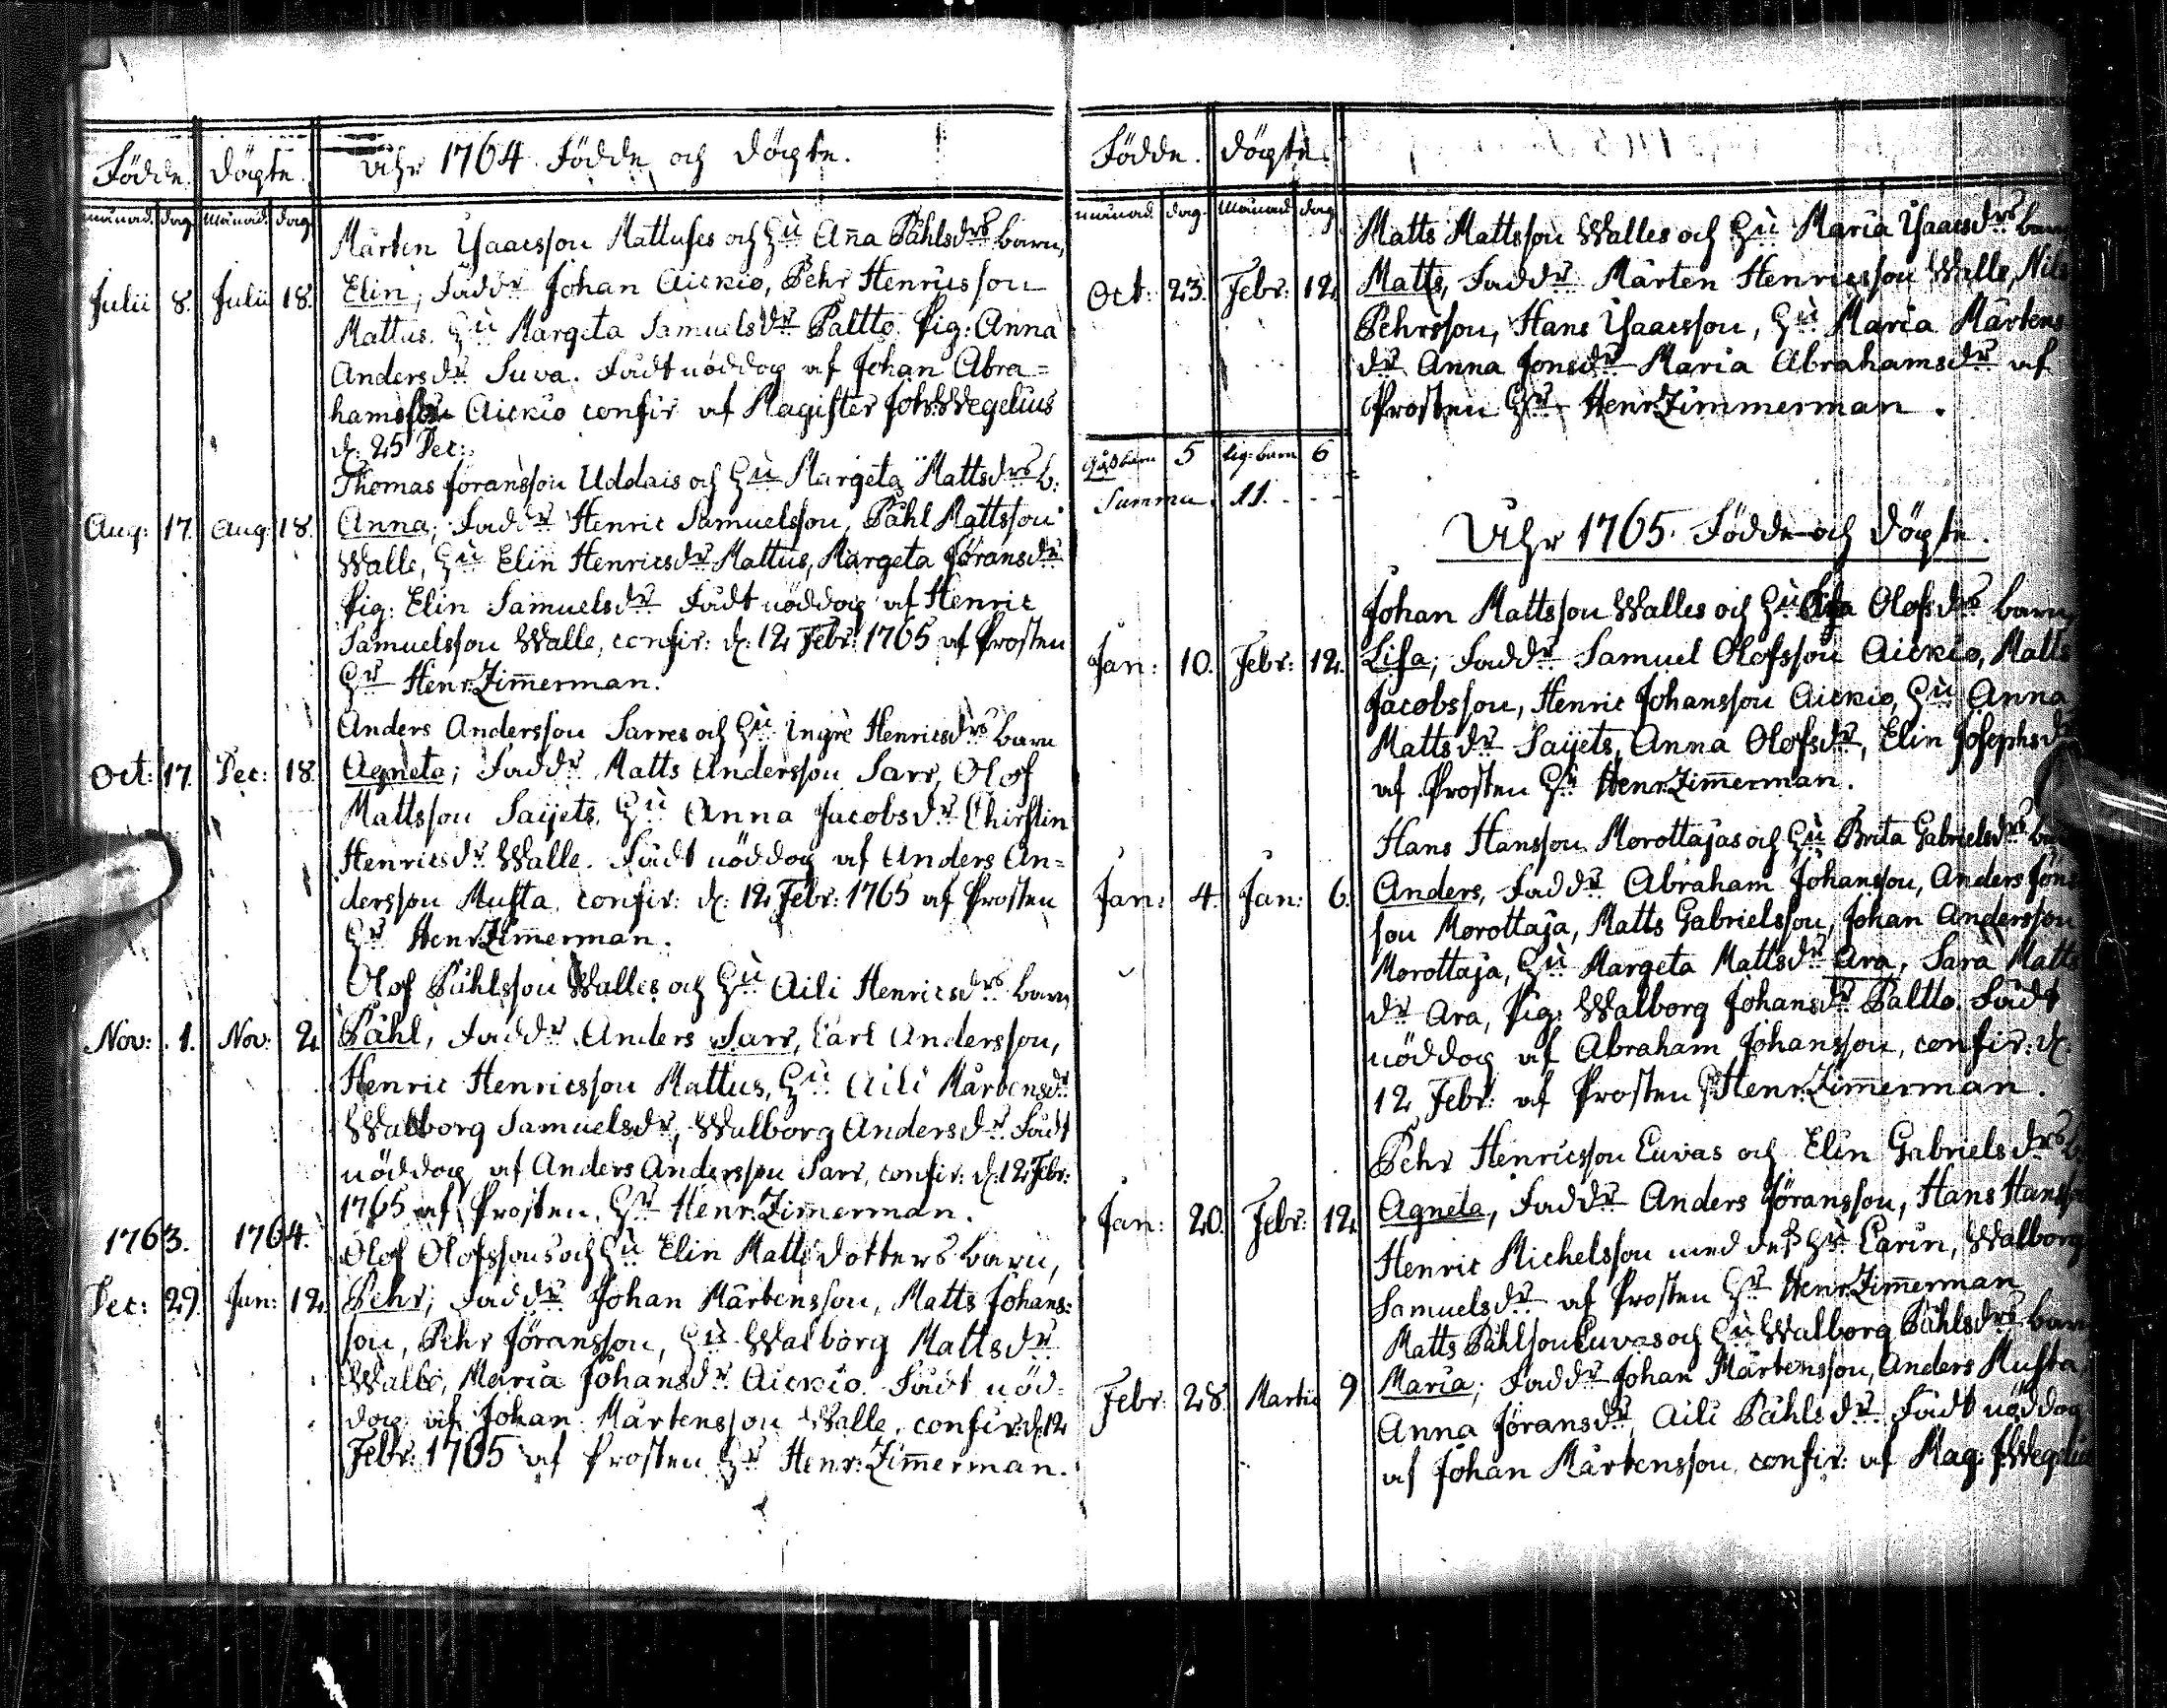 Födde. Döpte. Åhr 1764. Födde och Döpte.
månad. dag. månad. dag.
Mårten Ysaacsson Mattuses och Hu Aña Påhlsdrs barn,
Julii 8. Julii 18. Elin; Faddr Johan Aickio, Pehr Henricsson
Mattus. Hu Margeta Samuelsdr Paltto. Pig: Anna
Andersdr Suva. Fådt nöddop af Johan Abra=
hamsson Aickio confir af Magister Joh: Wegelius
d. 25 Dec:
Thomas Joransson Uddais och Hu Margeta Mattsdrs b.
Aug: 17. Aug 18. Anna; Faddr Henric Samuelsson, Påhl Mattsson
Walle, Hu Elin Henricsdr Mattus, Margeta Jöransdr
Pig: Elin Samuelsdr Fådt nöddop af Henric
Samuelsson Walle, confir: d. 12 Febr: 1765 af Prosten
Hr Henr: Zim̄erman.
Anders Andersson Sarres och Hu Ingre Henricsdrs barn
Oct: 17. Dec: 18. Agneta; Faddr Matts Andersson Sarr, Olof
Mattsson Saijets, Hu Anna Jacobsdr Chirstin
Henricsdr Walle. Fådt nöddop af Anders An=
dersson Musta, confir: d. 12 Febr: 1765 af Prosten
Hr Henr: Zim̄erman.
Olof Påhlsson Walles och Hu Aili Henricsdrs barn,
Nov: 1. Nov: 2. Påhl, Faddr Anders Sarr, Carl Andersson,
Henric Henricsson Mattus, Hu Aili Mårtensdr
Walborg Samuelsdr, Walborg Andersdr. Fådt
nöddop af Anders Andersson Sarr, confir: d. 12 Febr:
1765 af Prosten Hr Henr: Zimmerman.
1763. 1764. Olof Olofssons och Hu Elin Matts dotters barn,
Dec: 29. Jan: 12. Pehr; Faddr Johan Mårtensson, Matts Johans=
son, Pehr Jöransson, Hu Walborg Mattsdr
Walle, Maria Johansdr Aickio. Fådt nöd=
dop af Johan Mårtensson Walle, confir: d. 12
Febr: 1765 af Prosten Hr Henr: Zim̄erman.
Födde. Döpte.
månad. dag. månad. dag.
Matts Mattsson Walles och Hu Maria Ysaacsdrs barn
Oct: 23. Febr: 12. Matts, Faddr Mårten Henricsson Walle, Nils
Pehrsson, Hans Ysaacsson, Hu Maria Mårtens
dr Anna Jonsdr Maria Abrahamsdr af
Prosten Hr Henr: Zimmerman.
5 barn 6
Summa. 11.
Åhr 1765. Födde och Döpte.
Johan Mattsson Walles och Hu Olofsdrs barn
Jan: 10. Febr: 12. Lisa; Faddr Samuel Olofsson Aickio, Matts
Jacobsson, Henric Johansson Aickio, Hu Anna
Mattsdr Saijets, Anna Olofsdr, Elin Josephsdr
af Prosten Hr Henr: Zim̄erman.
Hans Hansson Morottajas och Hu Brita Gabrielsdrs barn
Jan: 4. Jan: 6. Anders, Faddr Abraham Johansson, Anders Jöns
son Morottaja, Matts Gabrielsson, Johan Andersson
Morottaja, Hu Margeta Mattsdr Ara, Sara Matts
dr Ara, Pig: Walborg Johansdr Paltto. Fådt
nöddop af Abraham Johansson, confir: d.
12 Febr: af Prosten Hr Henr: Zim̄erman.
Pehr Henricsson Cuvas och Elin Gabrielsdrs b.
Jan: 20. Febr: 12. Agneta, Faddr Anders Jöransson, Hans Hansson
Henric Michelsson med dess Hu Carin, Walborg
Samuelsdr af Prosten Hr Henr: Zim̄erman
Matts Påhlsson Cuvas och Hu Walborg Påhlsdrs barn
Febr: 28. Martii 9 Maria; Faddr Johan Mårtensson, Anders Musta
Anna Jöransdr, Aili Påhlsdr Fådt nöddop
af Johan Mårtensson, confir: af Mag: J: Wegelius